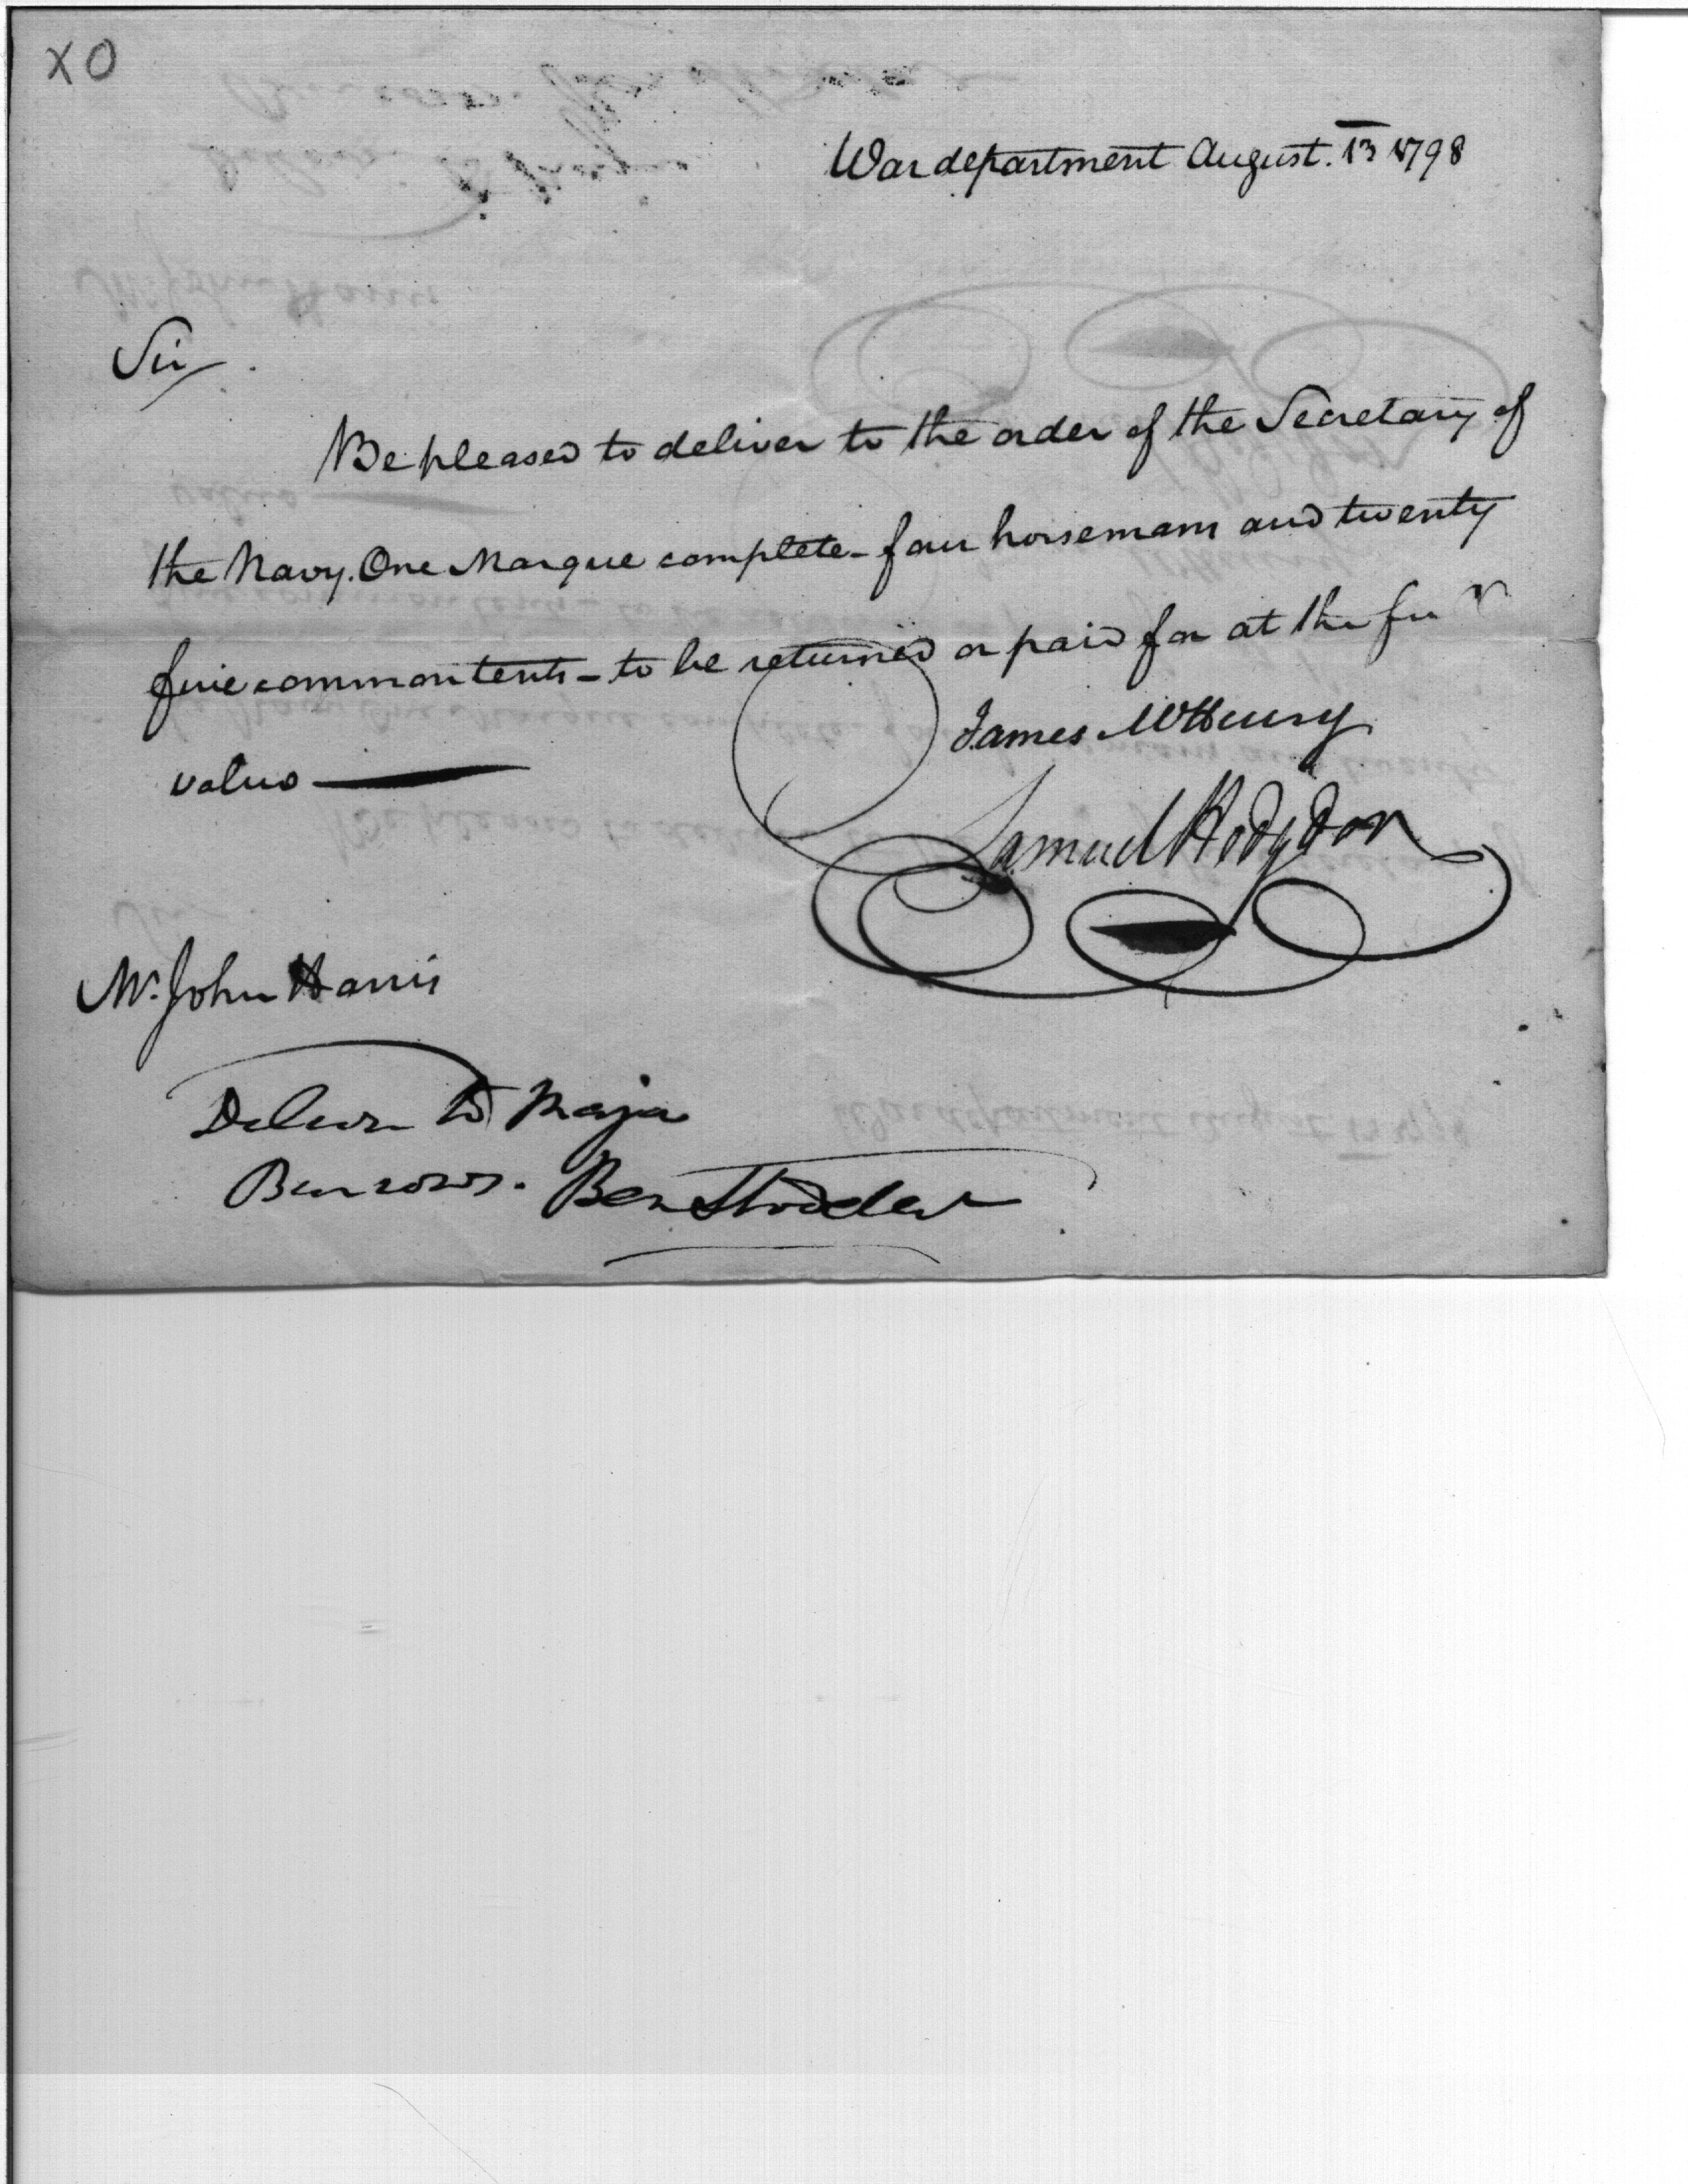 XO
War department August. 13 1798
Sir
Be pleased to deliver to the order of the Secretary of
the Navy. One Marque complete - four horsemans and twenty
five common tents - to be returned or paid for at the
value
James McHenry
Samuel Hodgdon
Mr. John Harris
Deliver to Major
Burrows. Ben Stoddert